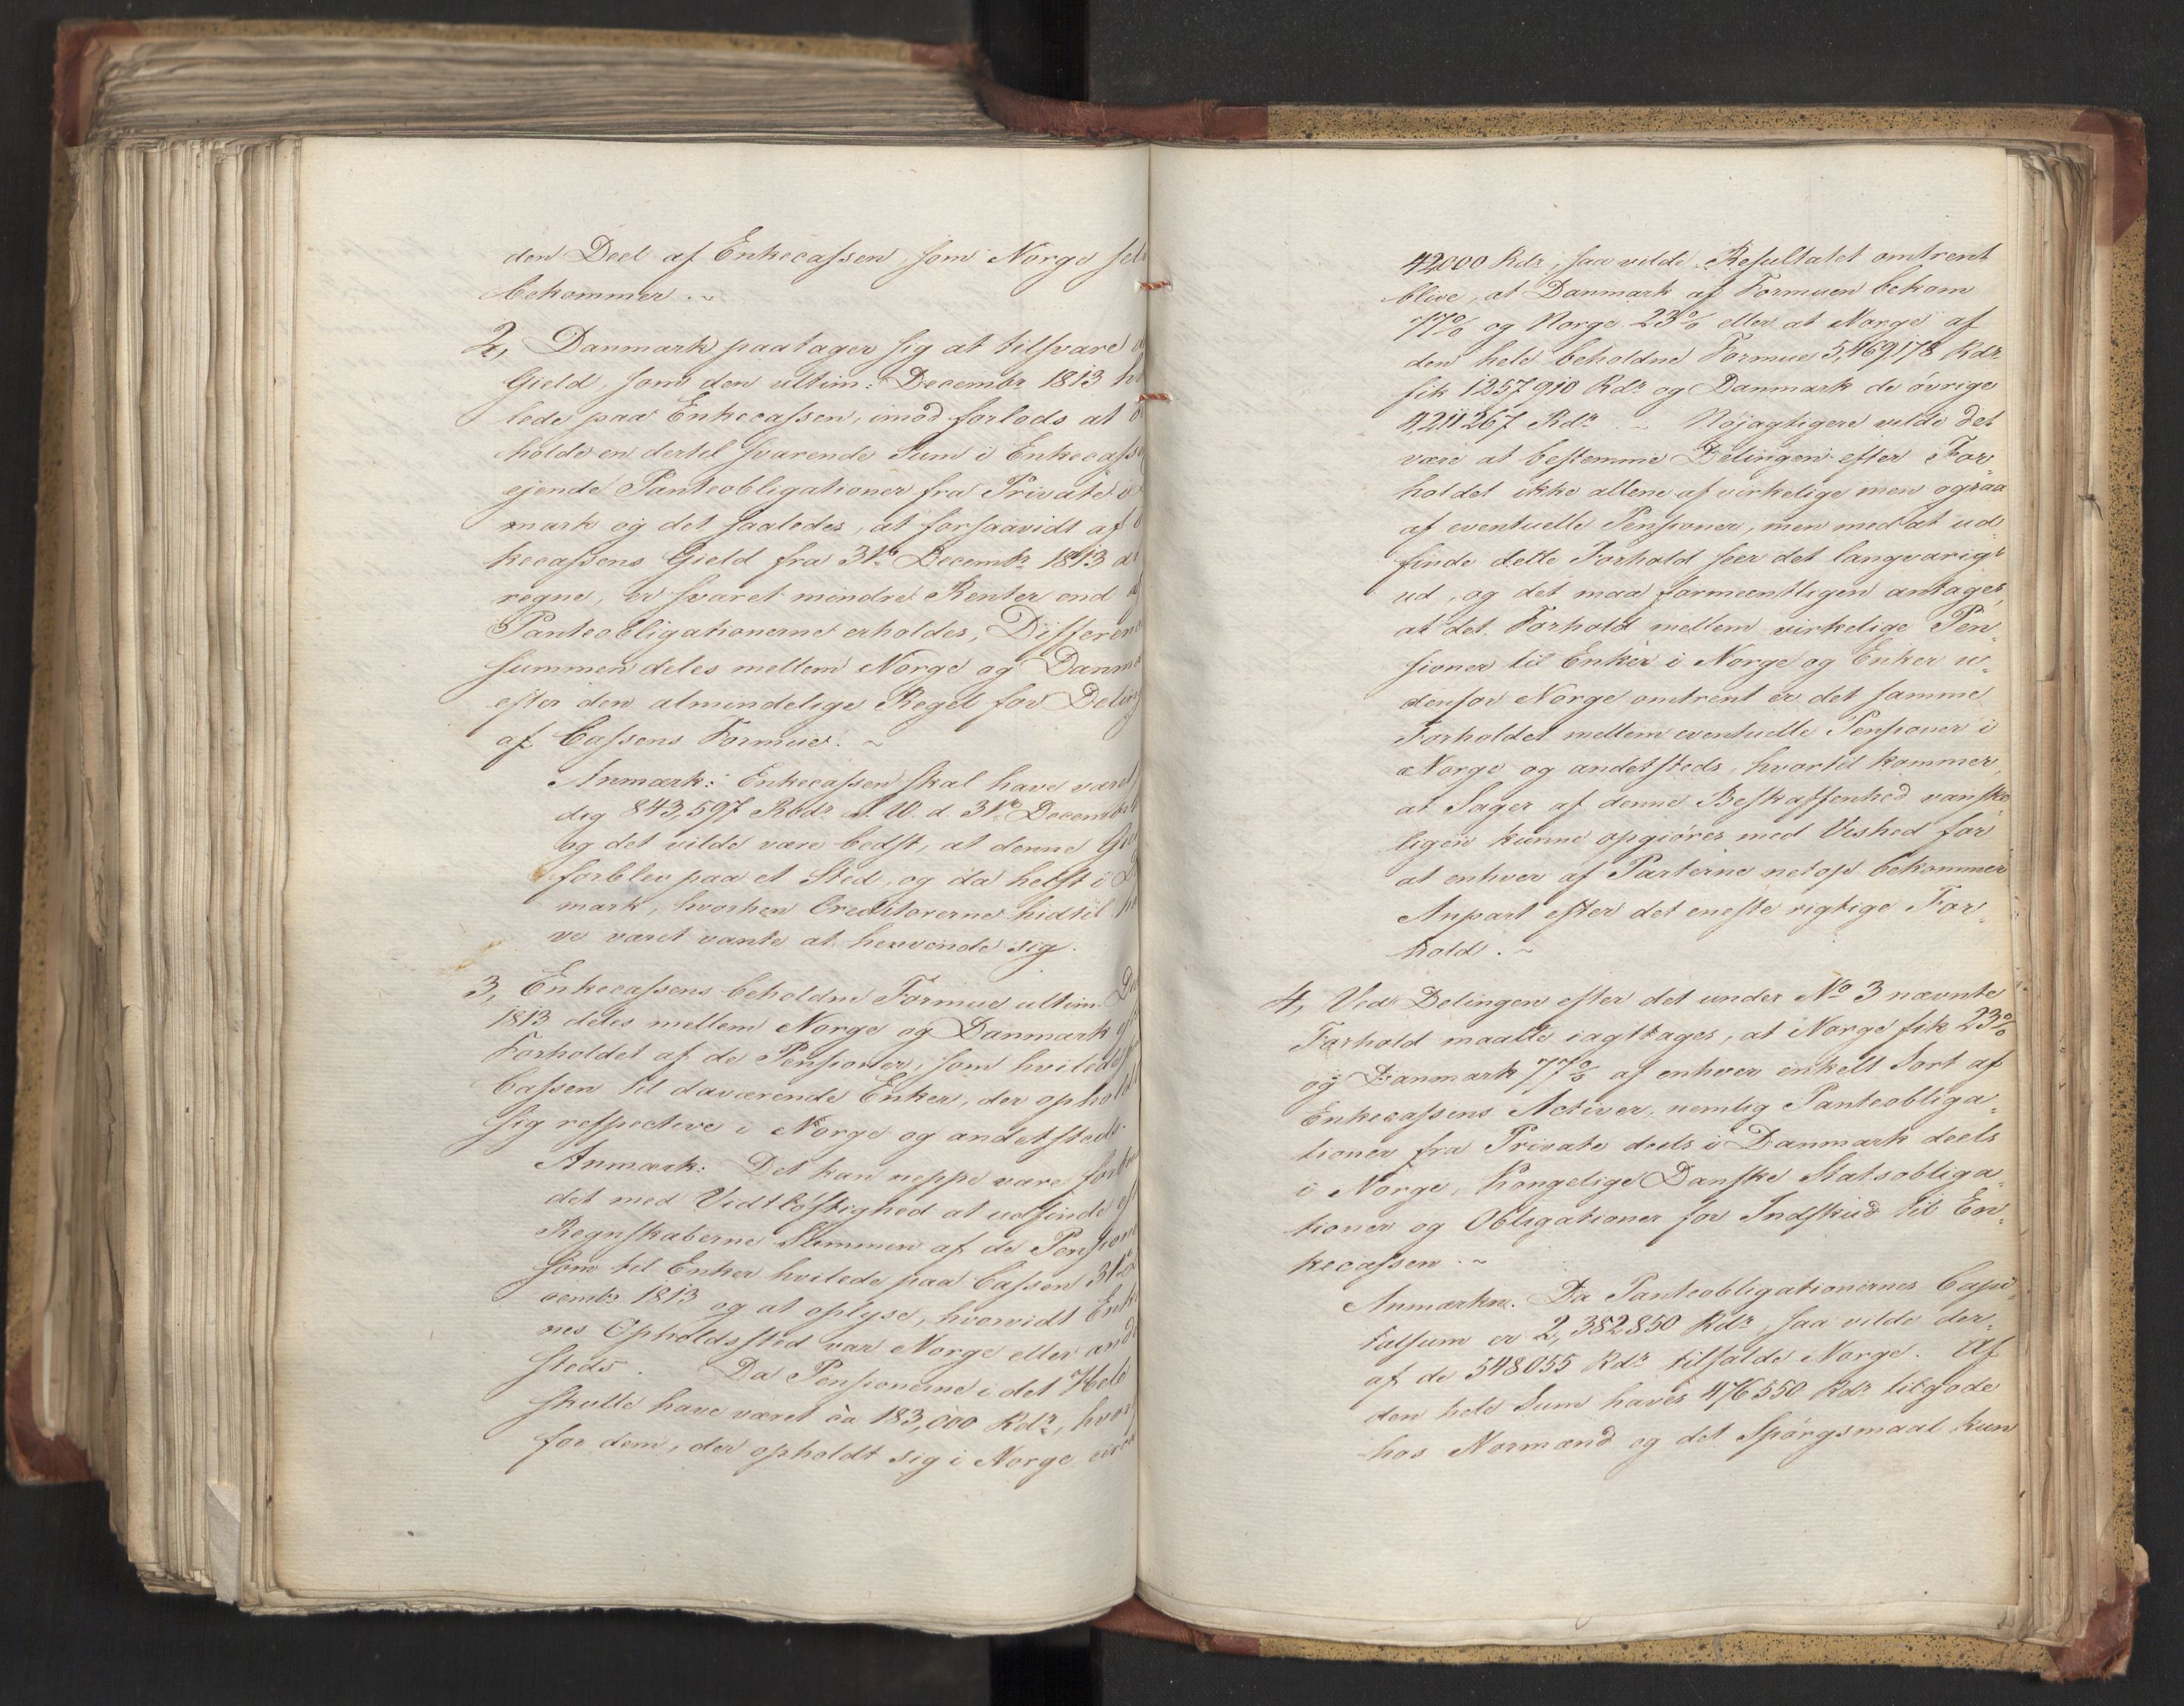 den Deel af Enkecassen, som Norge
bekommer. ~
2, Danmark paatager sig at tilsvare
Gield, som den ultim: Decembr 1813
lede paa Enkecassen, imod forlods at
holde en dertil svarende Sum i Enkecass
ejende Panteobligationer fra Private i
mark og det saaledes, at forsaavidt af
kecassens Gield fra 31te Decembr 1813
regne, er svaret mindre Renter end
Panteobligationerne erholdes, Differen
summen deles mellem Norge og Danm
efter den almindelige Regel for Deling
af Cassens Formue. ~
Anmærk: Enkecassen skal have været
dig 843,597 Rbdr S. V. d. 31te Decemb
og det vilde være bedst, at denne
forblev paa et Sted, og da helst i
mark, hvorhen Creditorerne hidtil
ve været vante at henvende sig.
3, Enkecassens beholdne Formue ultim.
1813 deles mellem Norge og Danmark
Forholdet af de Pensioner, som hvilede
Cassen til daværende Enker, der opholdt
sig respective i Norge og andetsteds.
Anmærk: Det kan neppe være
det med Vidtløftighed at udfinde
Regnskaberne Summen af de Pension
som til Enker hvilede paa Cassen 31te
cembr 1813 og at oplyse, hvorvidt Enk
nes Opholdssted var Norge eller
steds. Da Pensionerne i det Hele
skulle have været ca 183,000 Rdr, hvor
for dem, der opholdt sig i Norge circa
42000 Rdr, saa vilde Resultatet omtrent
blive, at Danmark af Formuen bekom
77% og Norge 23% eller at Norge af
den hele beholdne Formue 5,469,178 Rdr
fik 1257910 Rdr og Danmark de øvrige
4,211267 Rdr ~ Nøjagtigere vilde det
være at bestemme Delingen efter For-
holdet ikke allene af virkelige men ogsaa
af eventuelle Pensioner, men med at ud-
finde dette Forhold seer det langvarigt
ud, og det maa formeentligen antages,
at det Forhold mellem virkelige Pen-
sioner til Enker i Norge og Enker u-
denfor Norge omtrent er det samme
Forholdet mellem eventuelle Pensioner i
Norge og andetsteds, hvortil kommer,
at Sager af denne Beskaffenhed vanske-
ligen kunne opgiøres med Vished for
at enhver af Parterne netop bekommer
Anpart efter det eneste rigtige For-
hold. ~
4, Ved Delingen efter det under No 3 nævnte
Forhold maatte iagttages, at Norge fik 23%
og Danmark 77% af enhver enkelt Sort af
Enkecassens Activer, nemlig Panteobliga-
tioner fra Private deels i Danmark deels
i Norge, Kongelige Danske Statsobliga-
tioner og Obligationer for Indskud til En-
kecassen. ~
Anmærkn. Da Panteobligationernes Capi-
talsum er 2,382850 Rdr, saa vilde der-
af de 548055 Rdr tilfalde Norge. Af
den hele Sum haves 476550 Rdr tilgode
hos Normænd og det Spørgsmaal kun